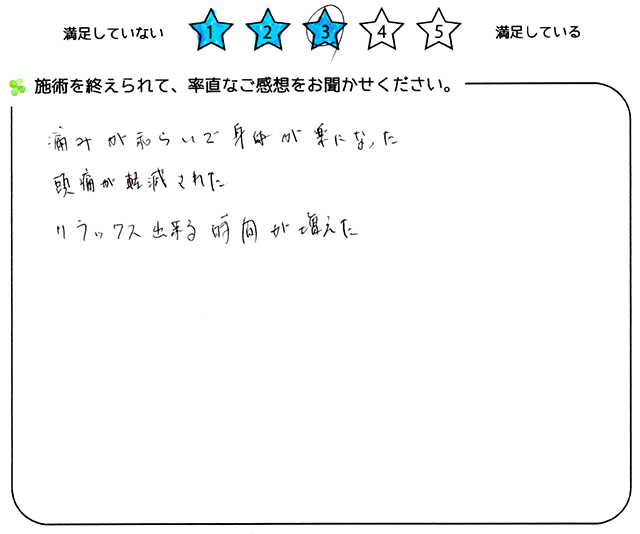 満足していない 1 2 3 4 5 満足している
施術を終えられて、率直なご感想をお聞かせください。
痛みが和らいで身体が楽になった
頭痛が軽減された
リラックス出来る時間が増えた